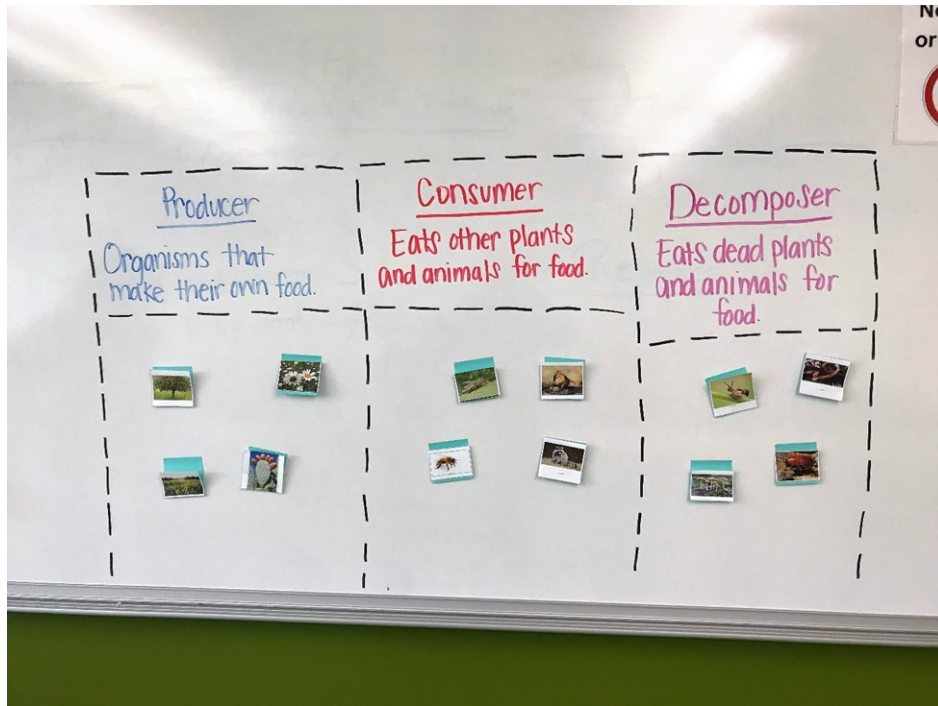 Producer
Organisms that
make their own food.
Consumer
Eats other plants
and animals for food.
Decomposer
Eats dead plants
and animals for
food.
or